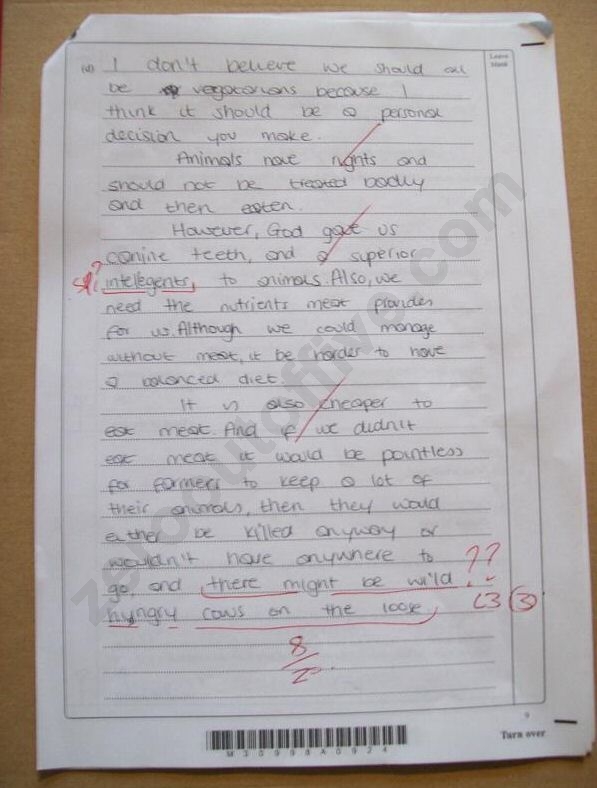 Leave
blank
(d) I don't believe we should all
be vegatarians because I
think it should be a personal
decision you make.
Animals have rights and
should not be treated badly
and then eaten.
However, God gave us
canine teeth, and a superior
sp. intelegents, to animals. Also, we
need the nutrients meat provides
for us. Although we could manage
without meat, it be harder to have
a balanced diet.
It is also cheaper to
eat meat. And if we didn't
eat meat it would be pointless
for farmers to keep a lot of
their animals, then they would
either be killed anyway or
wouldn't have anywhere to
go, and there might be wild ??
hungry cows on the loose. L3 (3)
8
9
M30998A0924
Turn over
zerooutoffive.com